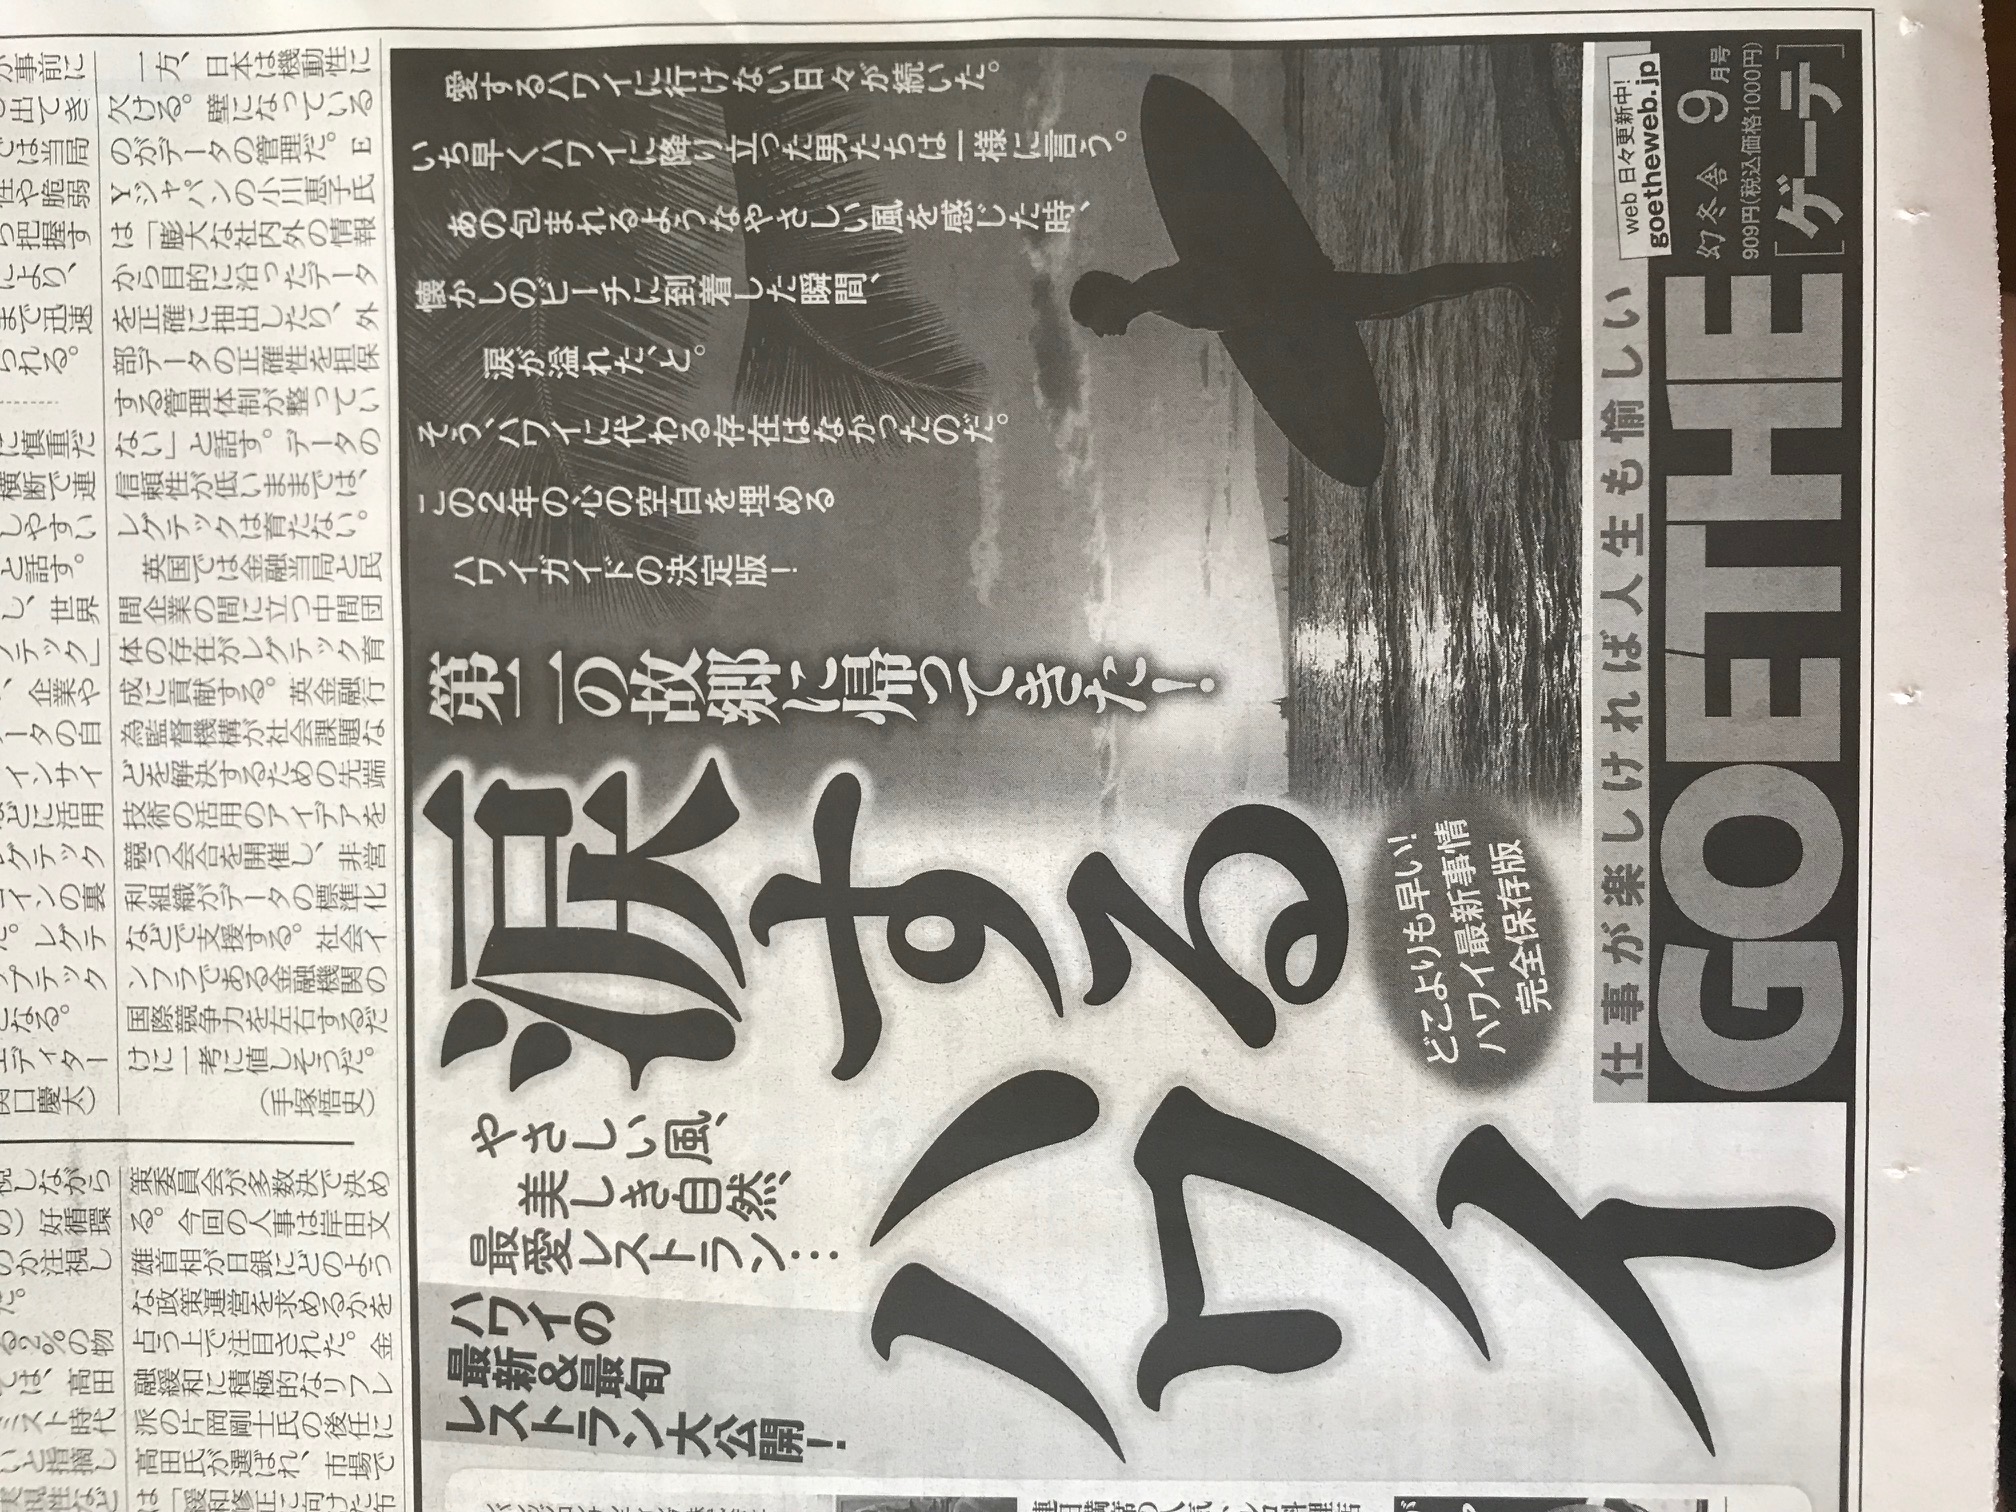 が事前に
出てき
では当局
性や脆弱
ら把握す
により、
まで迅速
られる。
に慎重だ
横断で連
しやすい
と話す。
し、世界
テック」
、企業や
ータの自
インサイ
どに活用
グテック
インの裏
た。レグテ
プテック
となる。
エディター
関口慶太）
一方、日本は機動性に
欠ける。壁になっている
のがデータの管理だ。E
Yジャパンの小川恵子氏
は「膨大な社内外の情報
から目的に沿ったデータ
を正確に抽出したり、外
部データの正確性を担保
する管理体制が整ってい
ない」と話す。データの
信頼性が低いままでは、
レグテックは育たない。
英国では金融当局と民
間企業の間に立つ中間団
体の存在がレグテック育
成に貢献する。英金融行
為監督機構が社会課題な
どを解決するための先端
技術の活用のアイデアを
競う会合を開催し、非営
利組織がデータの標準化
などで支援する。社会イ
ンフラである金融機関の
国際競争力を左右するだ
けに一考に値しそうだ。
（手塚悟史）
視しながら
の）好循環
のか注視し
た。
る2％の物
ては、高田
ミスト時代
いと指摘し
策委員会が多数決で決め
る。今回の人事は岸田文
雄首相が日銀にどのよう
な政策運営を求めるかを
占う上で注目された。金
融緩和に積極的なリフレ
派の片岡剛士氏の後任に
高田氏が選ばれ、市場で
は「緩和修正に向けた布
愛するハワイに行けない日々が続いた。
いち早くハワイに降り立った男たちは一様に言う。
あの包まれるようなやさしい風を感じた時、
懐かしのビーチに到着した瞬間、
涙が溢れた、と。
そう、ハワイに代わる存在はなかったのだ。
この2年の心の空白を埋める
ハワイガイドの決定版！
第二の故郷に帰ってきた！
涙する
ハワイ
やさしい風、
美しき自然、
最愛レストラン…
ハワイの
最新&最旬
レストラン大公開！
どこよりも早い！
ハワイ最新事情
完全保存版
仕事が楽しければ人生も愉しい
web 日々更新中！
goetheweb.jp
GOETHE
幻冬舎 9月号
909円(税込価格1000円)
［ゲーテ］